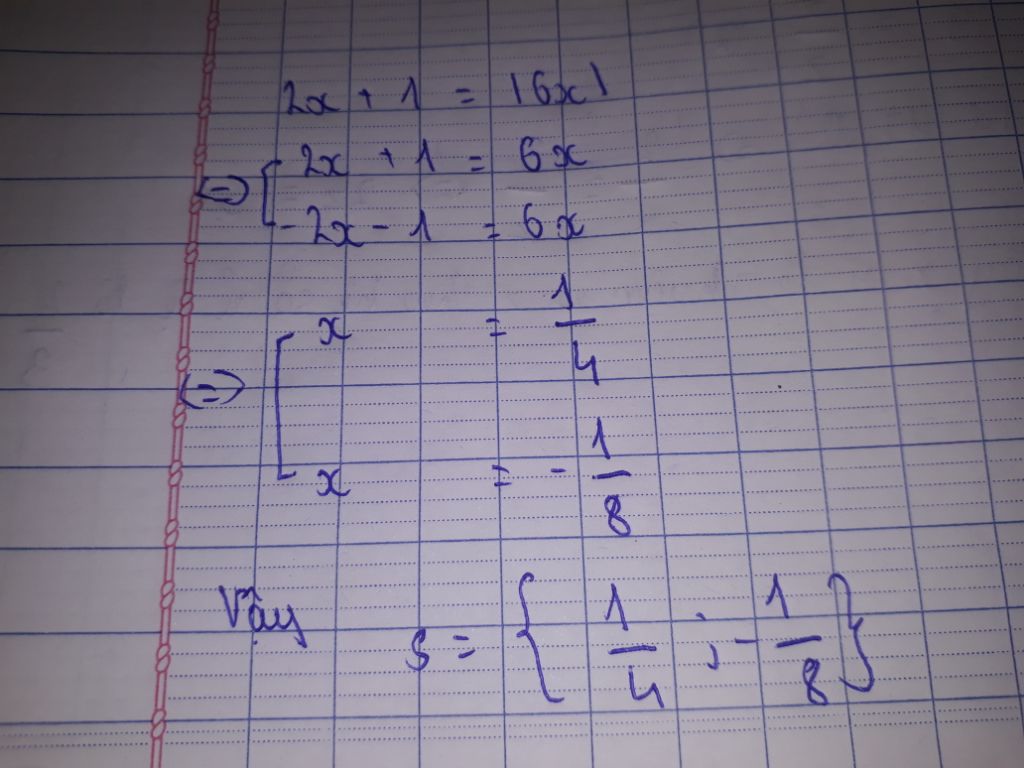 2x + 1 = |6x|
⇔ [ 2x + 1 = 6x
-2x - 1 = 6x
⇔ [ x = 1/4
x = -1/8
Vậy S = { 1/4 ; -1/8 }